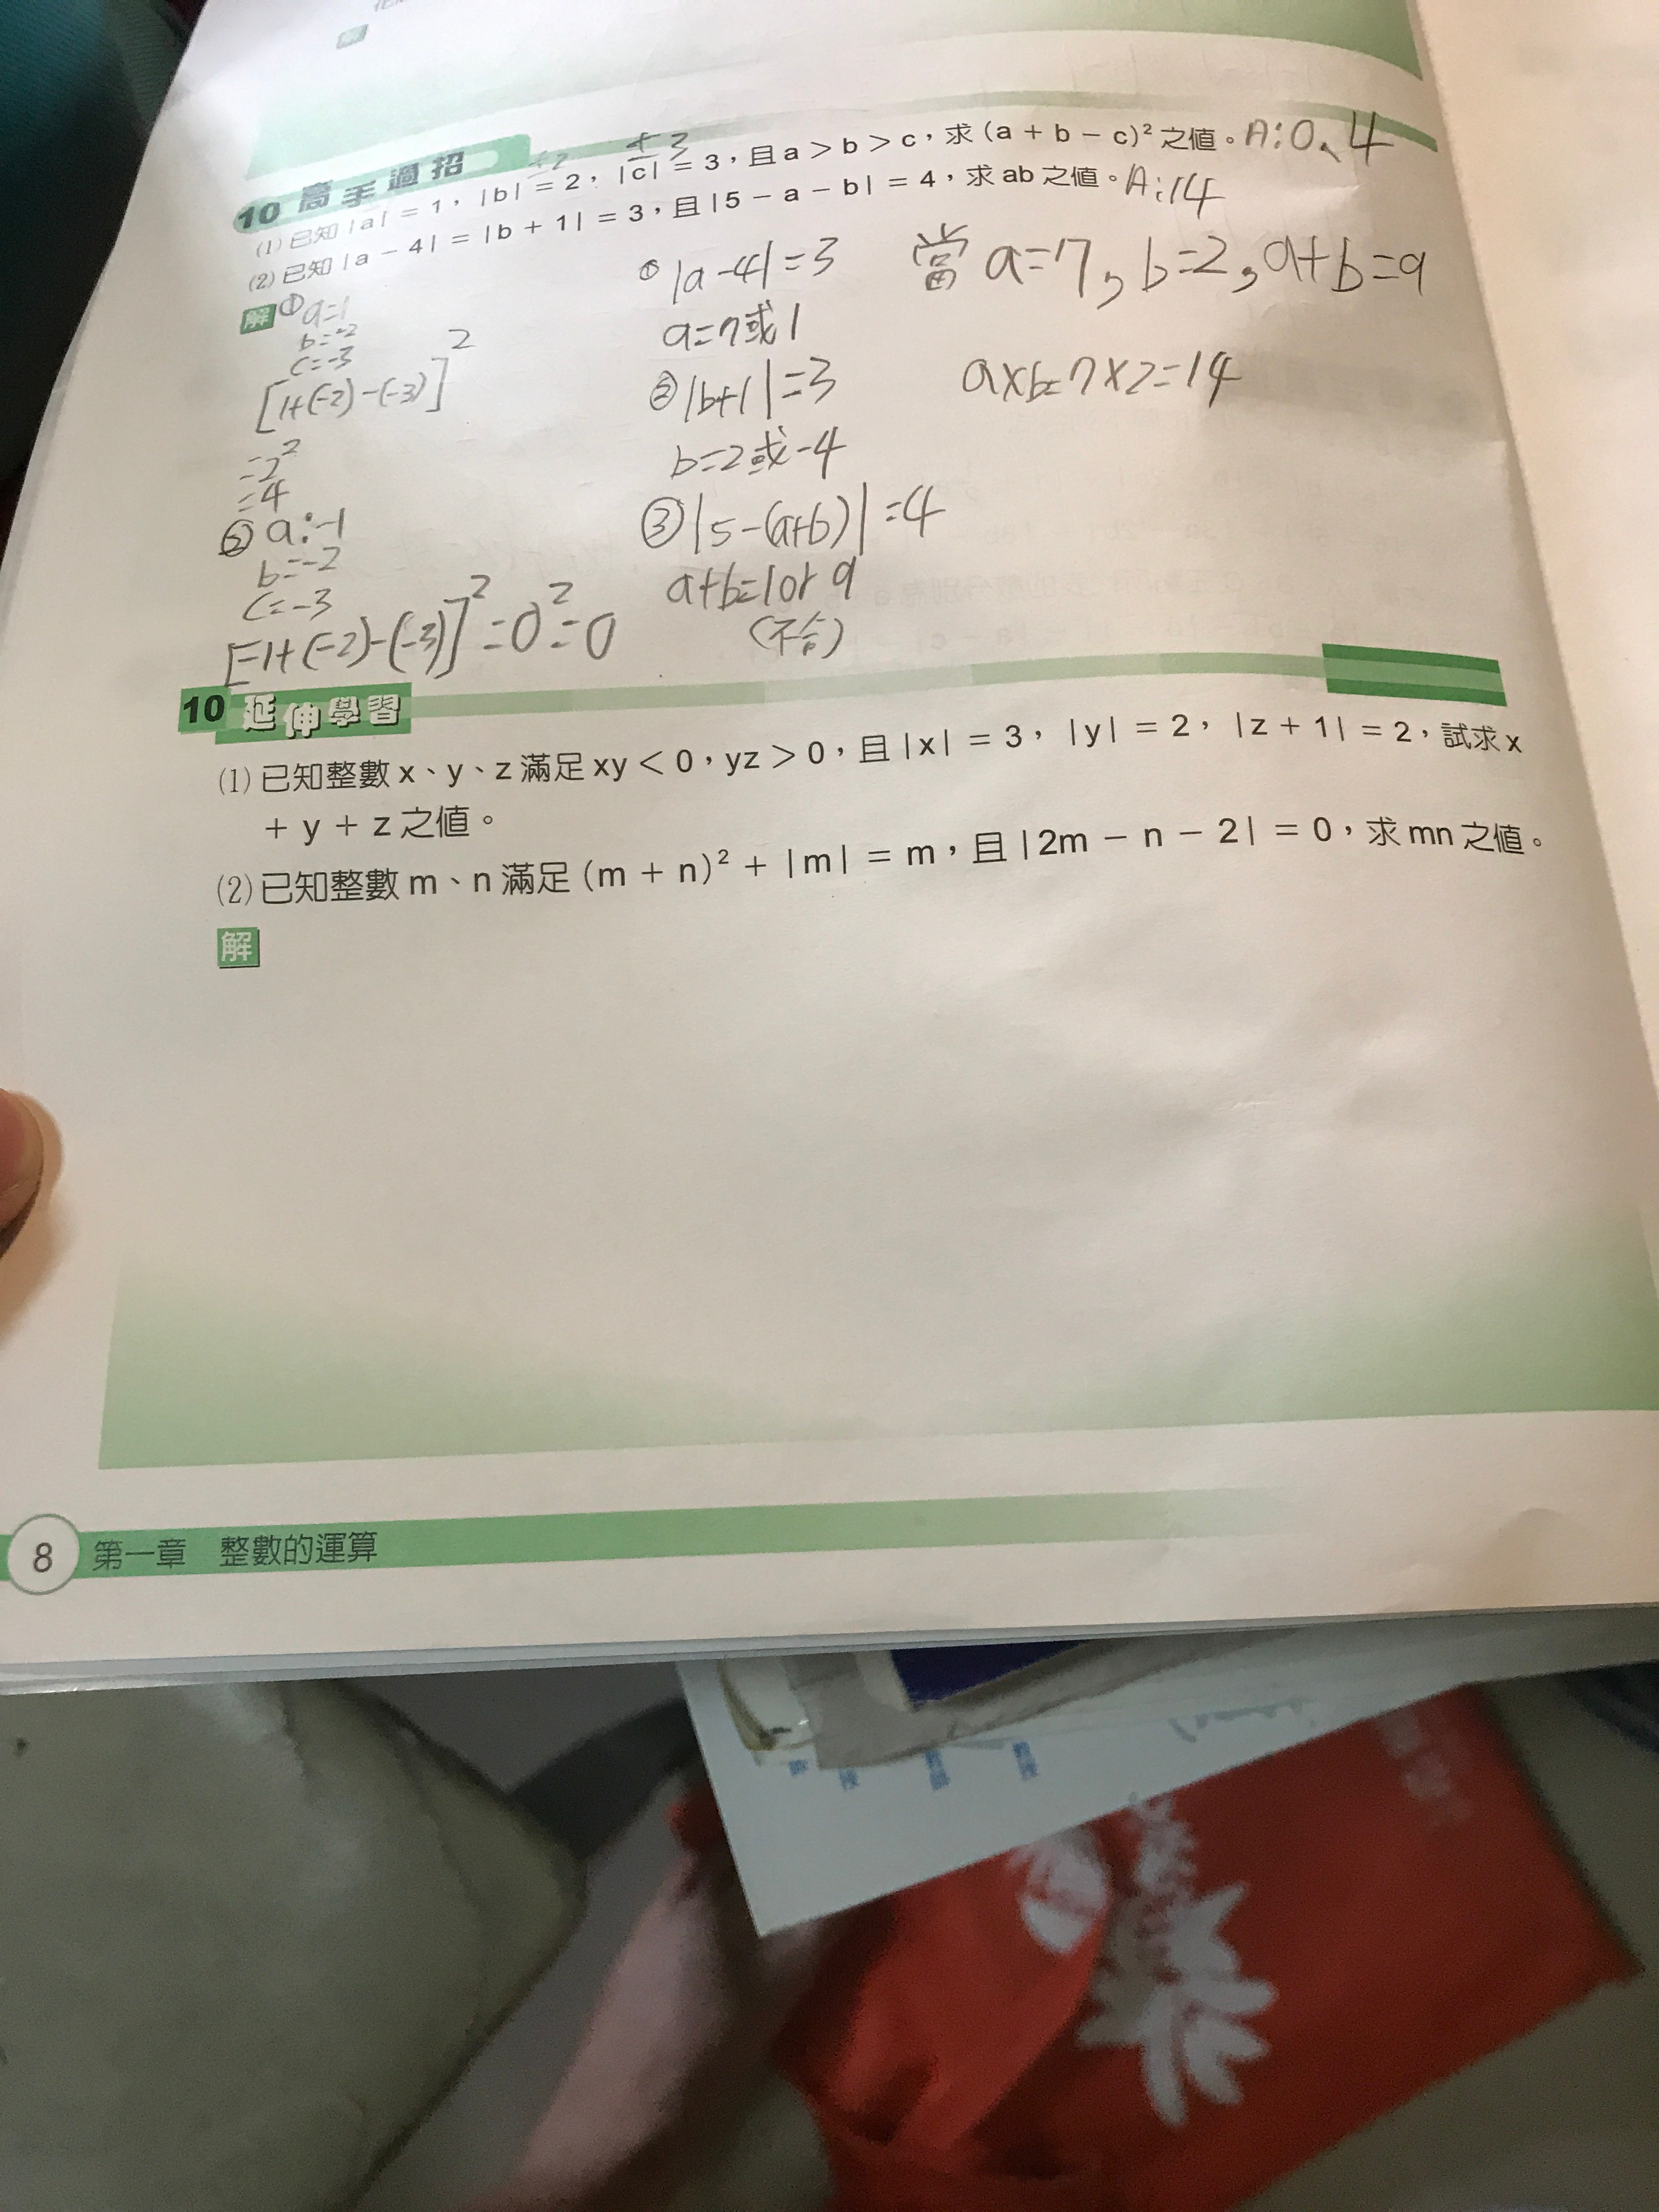 10 高手過招
(1) 已知 |a| = 1，|b| = 2，|c| = 3，且 a > b > c，求 (a + b − c)² 之值。A:0、4
±2 ±3
(2) 已知 |a − 4| = |b + 1| = 3，且 |5 − a − b| = 4，求 ab 之值。A:14
解 ① a=1
b=-2
c=-3
[1+(-2)-(-3)]²
=2²
=4
② a:-1
b=-2
c=-3
[-1+(-2)-(-3)]²=0²=0
① |a-4|=3
a=7或1
② |b+1|=3
b=2或-4
③ |5-(a+b)|=4
a+b=1or 9
(不合)
當 a=7, b=2, a+b=9
a×b=7×2=14
10 延伸學習
(1) 已知整數 x、y、z 滿足 xy < 0，yz > 0，且 |x| = 3，|y| = 2，|z + 1| = 2，試求 x
+ y + z 之值。
(2) 已知整數 m、n 滿足 (m + n)² + |m| = m，且 |2m − n − 2| = 0，求 mn 之值。
解
8 第一章 整數的運算